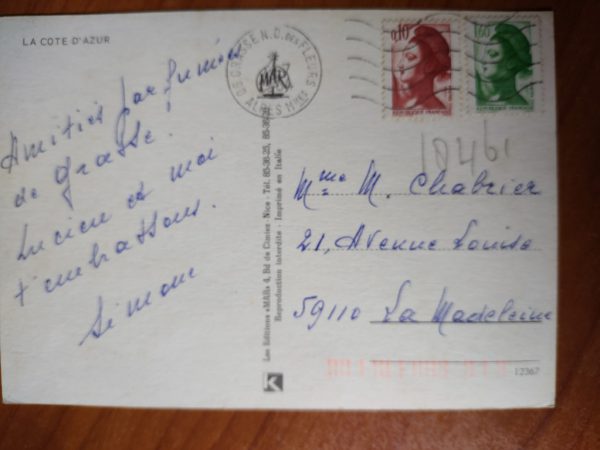 LA COTE D'AZUR
Amitiés parfumées
de Grasse.
Lucien et moi
t'embrassons.
Simone
DE GRASSE N.D. des FLEURS
ALPES Mmes
MAR
0,10
REPUBLIQUE FRANÇAISE
1,60
REPUBLIQUE FRANÇAISE
Mme M. Chabrier
21, Avenue Louise
59110 La Madeleine
Les Editions «MAR» 4, Bd de Cimiez Nice - Tél.
Reproduction interdite - Imprimé en Italie
K
12367